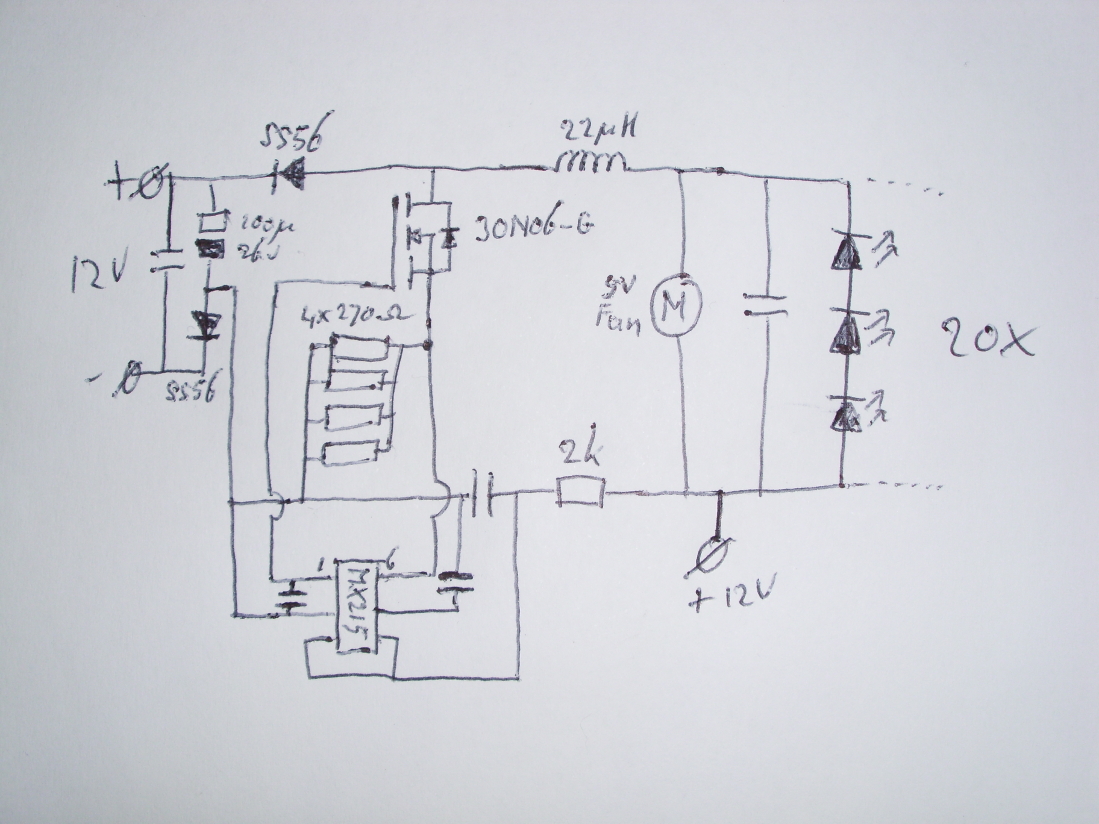 SS56
22µH
+
200µ
26V
30N06-G
12V
4x270Ω
5V
Fan
M
20X
-
SS56
2k
1
6
MX215
+12V